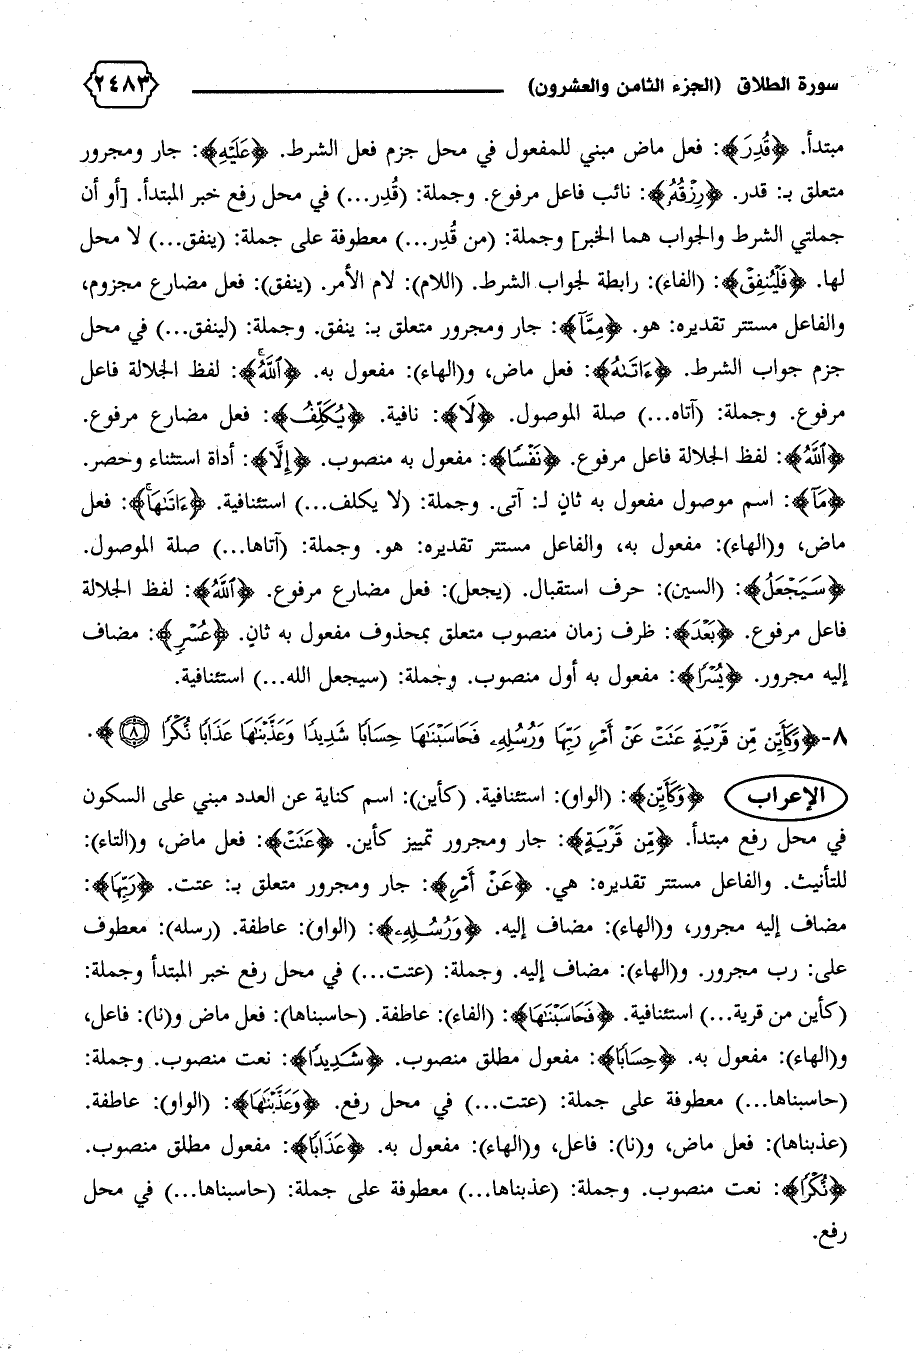 سورة الطلاق (الجزء الثامن والعشرون) ٢٤٨٣
مبتدأ. ﴿قُدِرَ﴾: فعل ماض مبني للمفعول في محل جزم فعل الشرط. ﴿عَلَيْهِ﴾: جار ومجرور
متعلق بـ: قدر. ﴿رِزْقُهُۥ﴾: نائب فاعل مرفوع. وجملة: (قُدِر...) في محل رفع خبر المبتدأ. [أو أن
جملتي الشرط والجواب هما الخبر] وجملة: (من قُدِر...) معطوفة على جملة: (ينفق...) لا محل
لها. ﴿فَلْيُنفِقْ﴾: (الفاء): رابطة لجواب الشرط. (اللام): لام الأمر. (ينفق): فعل مضارع مجزوم،
والفاعل مستتر تقديره: هو. ﴿مِمَّآ﴾: جار ومجرور متعلق بـ: ينفق. وجملة: (لينفق...) في محل
جزم جواب الشرط. ﴿ءَاتَىٰهُ﴾: فعل ماض، و(الهاء): مفعول به. ﴿ٱللَّهُۚ﴾: لفظ الجلالة فاعل
مرفوع. وجملة: (أتاه...) صلة الموصول. ﴿لَا﴾: نافية. ﴿يُكَلِّفُ﴾: فعل مضارع مرفوع.
﴿ٱللَّهُ﴾: لفظ الجلالة فاعل مرفوع. ﴿نَفْسًا﴾: مفعول به منصوب. ﴿إِلَّا﴾: أداة استثناء وحصر.
﴿مَآ﴾: اسم موصول مفعول به ثانٍ لـ: آتى. وجملة: (لا يكلف...) استئنافية. ﴿ءَاتَىٰهَاۚ﴾: فعل
ماض، و(الهاء): مفعول به، والفاعل مستتر تقديره: هو. وجملة: (آتاها...) صلة الموصول.
﴿سَيَجْعَلُ﴾: (السين): حرف استقبال. (يجعل): فعل مضارع مرفوع. ﴿ٱللَّهُ﴾: لفظ الجلالة
فاعل مرفوع. ﴿بَعْدَ﴾: ظرف زمان منصوب متعلق بمحذوف مفعول به ثانٍ. ﴿عُسْرٍ﴾: مضاف
إليه مجرور. ﴿يُسْرًا﴾: مفعول به أول منصوب. وجملة: (سيجعل الله...) استئنافية.
٨-﴿وَكَأَيِّن مِّن قَرْيَةٍ عَتَتْ عَنْ أَمْرِ رَبِّهَا وَرُسُلِهِۦ فَحَاسَبْنَٰهَا حِسَابًا شَدِيدًا وَعَذَّبْنَٰهَا عَذَابًا نُّكْرًا ٨﴾.
الإعراب ﴿وَكَأَيِّن﴾: (الواو): استئنافية. (كأين): اسم كناية عن العدد مبني على السكون
في محل رفع مبتدأ. ﴿مِّن قَرْيَةٍ﴾: جار ومجرور تمييز كأين. ﴿عَتَتْ﴾: فعل ماض، و(التاء):
للتأنيث. والفاعل مستتر تقديره: هي. ﴿عَنْ أَمْرِ﴾: جار ومجرور متعلق بـ: عتت. ﴿رَبِّهَا﴾:
مضاف إليه مجرور، و(الهاء): مضاف إليه. ﴿وَرُسُلِهِۦ﴾: (الواو): عاطفة. (رسله): معطوف
على: رب مجرور. و(الهاء): مضاف إليه. وجملة: (عتت...) في محل رفع خبر المبتدأ وجملة:
(كأين من قرية...) استئنافية. ﴿فَحَاسَبْنَٰهَا﴾: (الفاء): عاطفة. (حاسبناها): فعل ماض و(نا): فاعل،
و(الهاء): مفعول به. ﴿حِسَابًا﴾: مفعول مطلق منصوب. ﴿شَدِيدًا﴾: نعت منصوب. وجملة:
(حاسبناها...) معطوفة على جملة: (عتت...) في محل رفع. ﴿وَعَذَّبْنَٰهَا﴾: (الواو): عاطفة.
(عذبناها): فعل ماض، و(نا): فاعل، و(الهاء): مفعول به. ﴿عَذَابًا﴾: مفعول مطلق منصوب.
﴿نُّكْرًا﴾: نعت منصوب. وجملة: (عذبناها...) معطوفة على جملة: (حاسبناها...) في محل
رفع.